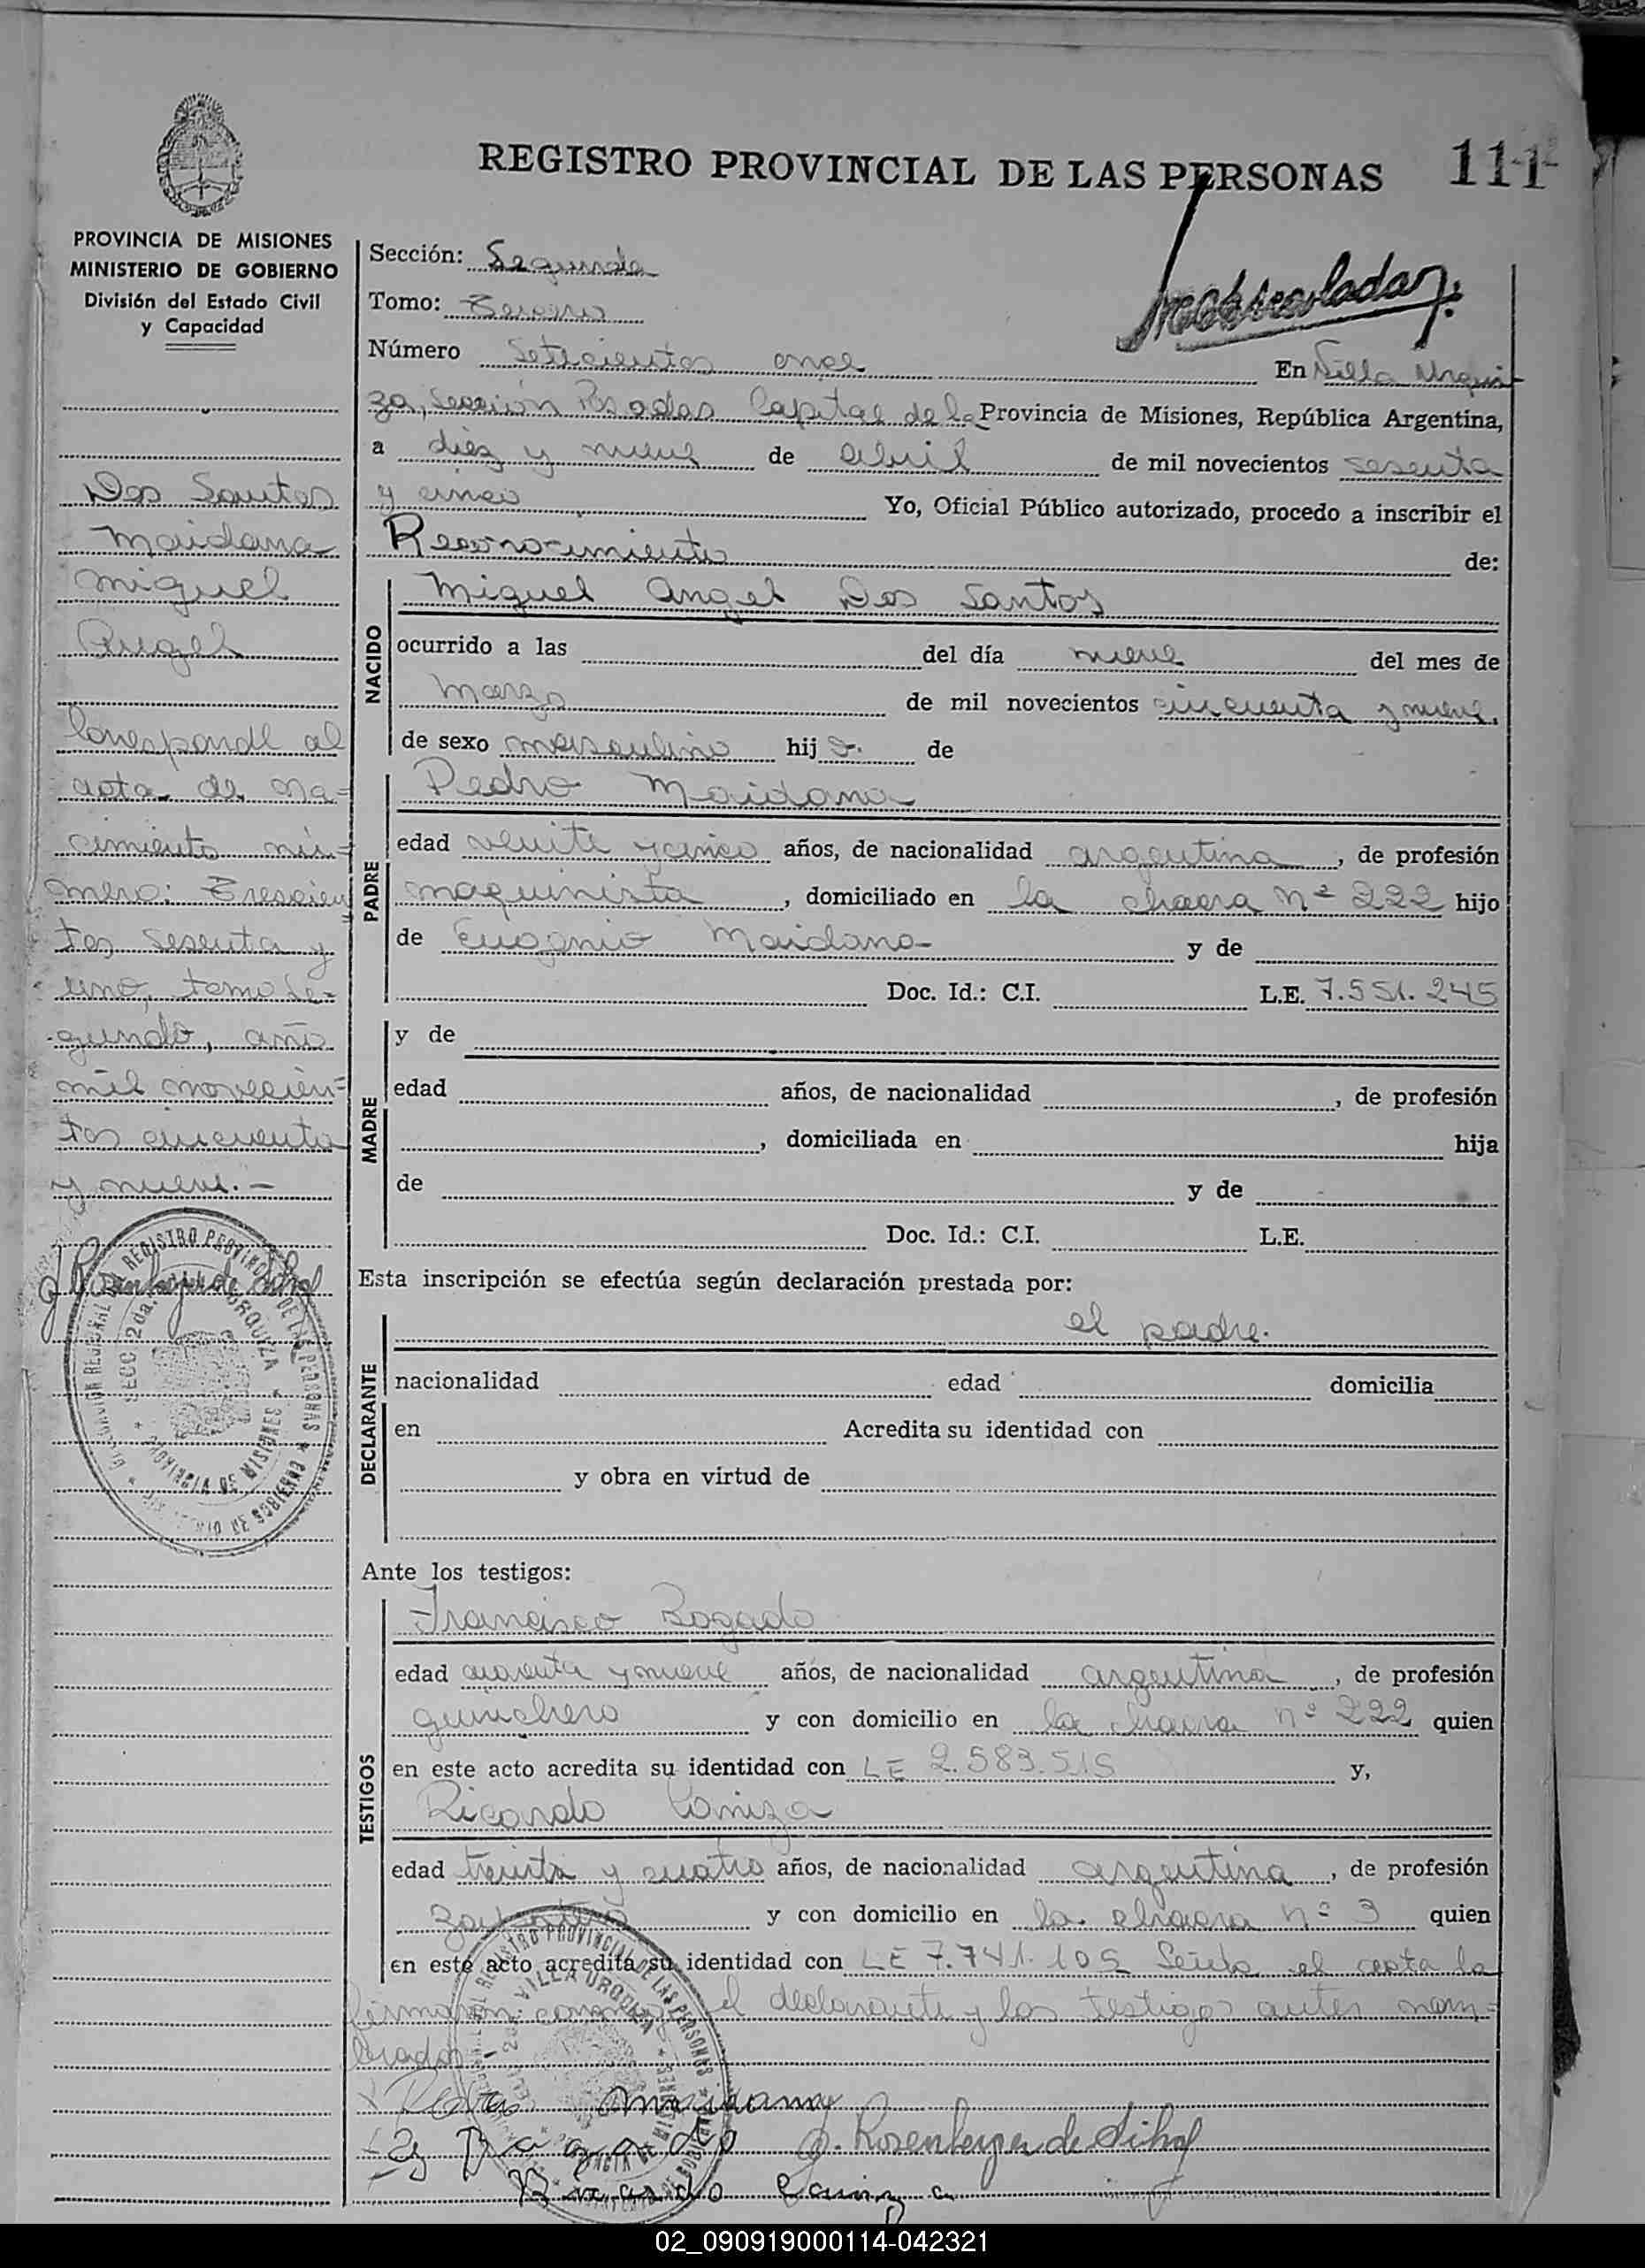 REGISTRO PROVINCIAL DE LAS PERSONAS 111
PROVINCIA DE MISIONES
MINISTERIO DE GOBIERNO
División del Estado Civil
y Capacidad
Dos Santos
Maidana
Miguel
Angel
Corresponde al
acta de na=
cimiento nú=
mero: Trescien
tos sesenta y
uno, tomo se=
gundo, año
mil novecien=
tos cincuenta
y nueve.-
Sección: Segunda
Tomo: Tercero
Número Setecientos once En Villa Urqui
za, Sección Posadas Capital de la Provincia de Misiones, República Argentina,
a diez y nueve de abril de mil novecientos sesenta
y cinco Yo, Oficial Público autorizado, procedo a inscribir el
Reconocimiento de:
NACIDO
Miguel Angel Dos Santos
ocurrido a las del día nueve del mes de
Marzo de mil novecientos cincuenta y nueve.
de sexo masculino hijo. de
PADRE
Pedro Maidana
edad veinte y cinco años, de nacionalidad argentina, de profesión
maquinista, domiciliado en la chacra nº 222 hijo
de Eugenio Maidana y de
Doc. Id.: C.I. L.E. 7.551.245
MADRE
y de
edad años, de nacionalidad , de profesión
, domiciliada en hija
de y de
Doc. Id.: C.I. L.E.
Esta inscripción se efectúa según declaración prestada por:
DECLARANTE
el padre.
nacionalidad edad domicilia
en Acredita su identidad con
y obra en virtud de
Ante los testigos:
TESTIGOS
Francisco Bogado
edad cuarenta y nueve años, de nacionalidad argentina, de profesión
guinchero y con domicilio en la chacra nº 222 quien
en este acto acredita su identidad con LE 2.583.515 y,
Ricardo Caniza
edad treinta y cuatro años, de nacionalidad argentina, de profesión
zapatero y con domicilio en la chacra nº 3 quien
en este acto acredita su identidad con LE 7.741.105 Leida el acta la
firmaron el declarante y los testigos antes nom=
brados.-
Maidana
Bogado J. Rosenberger de
Ricardo Caniza
02_090919000114-042321